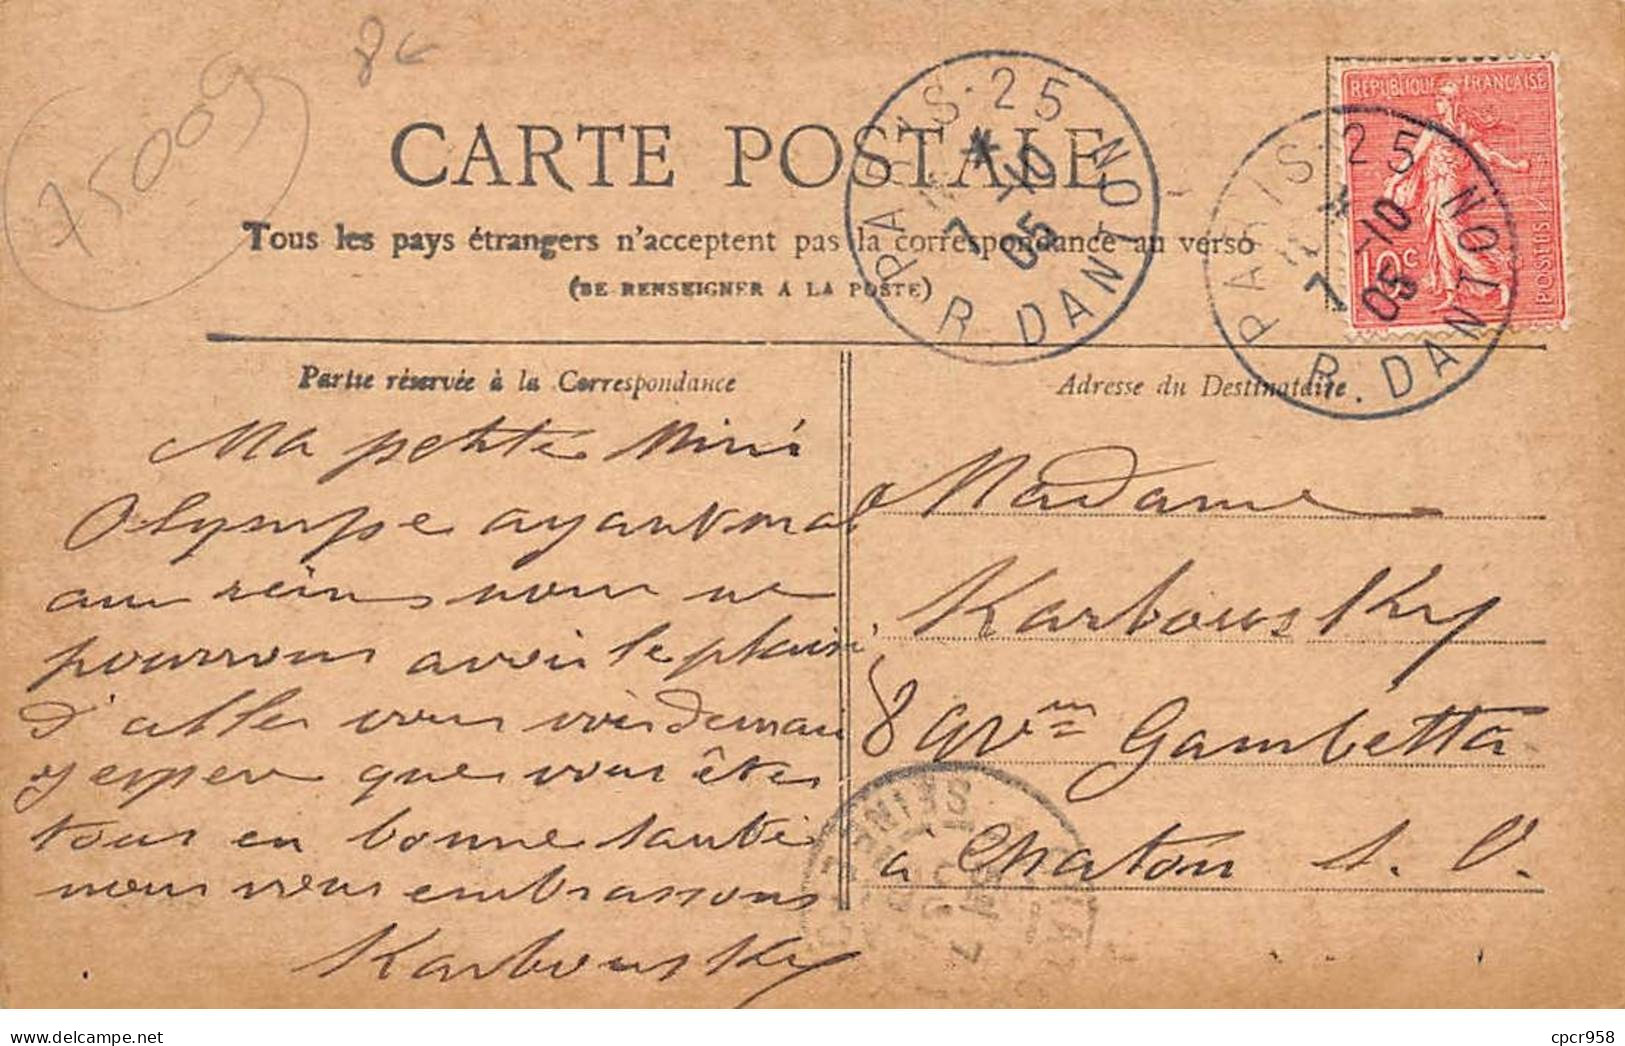 75009
8€
CARTE POSTALE
Tous les pays étrangers n'acceptent pas la correspondance au verso
(SE RENSEIGNER A LA POSTE)
PARIS·25 R. DANTON
7 -10
05
PARIS·25 R. DANTON
7 -10
05
REPUBLIQUE FRANÇAISE
10c
POSTES
Partie réservée à la Correspondance
Adresse du Destinataire
Ma petite Mimi
Olympe ayant mal
aux reins nous ne
pourrons avoir le plaisir
d'aller vous voir demain
j'espere que vous êtes
tous en bonne santé
nous vous embrassons
Karbowsky
Madame
Karbowsky
8 Avue Gambetta
à Chatou S. O.
SEINE
cpcr958